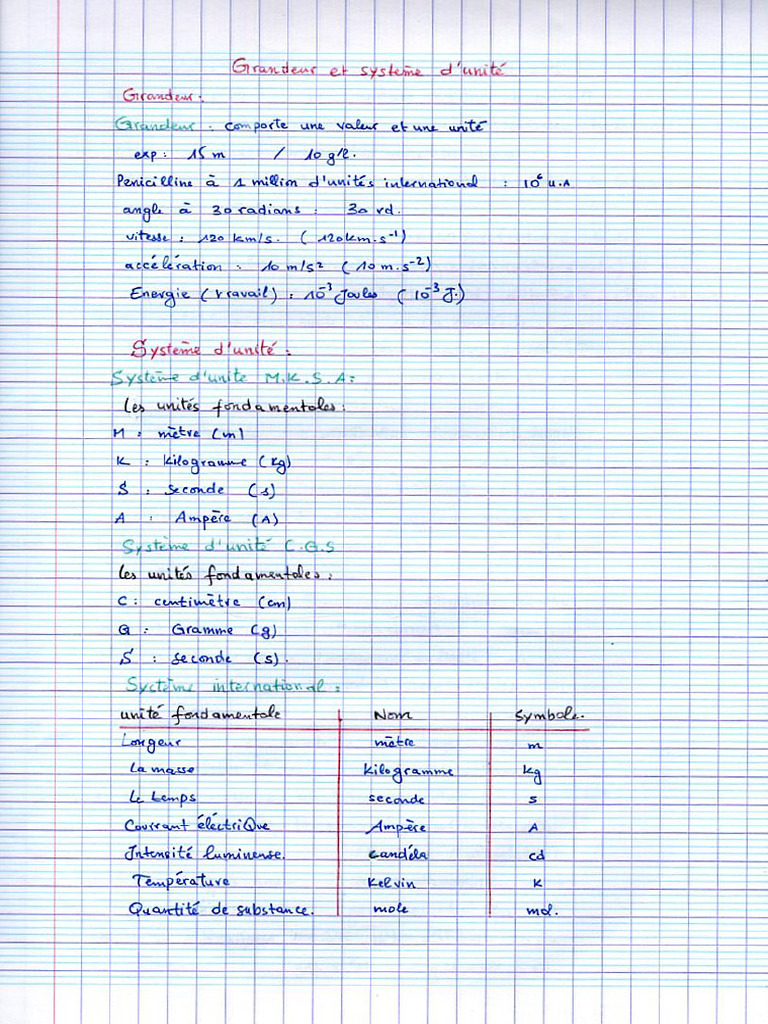 Grandeur et système d'unité
Grandeur :
Grandeur : comporte une valeur et une unité
exp : 15 m / 10 g/l.
Penicilline à 1 million d'unités international : 10⁶ u.A
angle à 30 radians : 30 rd.
vitesse : 120 km/s. ( 120 km.s⁻¹)
accélération : 10 m/s² ( 10 m.s⁻²)
Energie (travail) : 10⁻³ Joules ( 10⁻³ J.)
Système d'unité :
Système d'unite M.K.S.A :
Les unités fondamentales :
M : mètre (m)
K : Kilogramme (kg)
S : Seconde (s)
A : Ampère (A)
Système d'unité C.G.S
Les unités fondamentales :
C : centimètre (cm)
G : Gramme (g)
S : Seconde (s).
Système international :
unité fondamentale Nom Symbole.
Longeur mètre m
La masse Kilogramme kg
Le temps seconde s
Courrant électrique Ampère A
Intensité lumineuse. candéla cd
Température Kelvin K
Quantité de substance. mole mol.